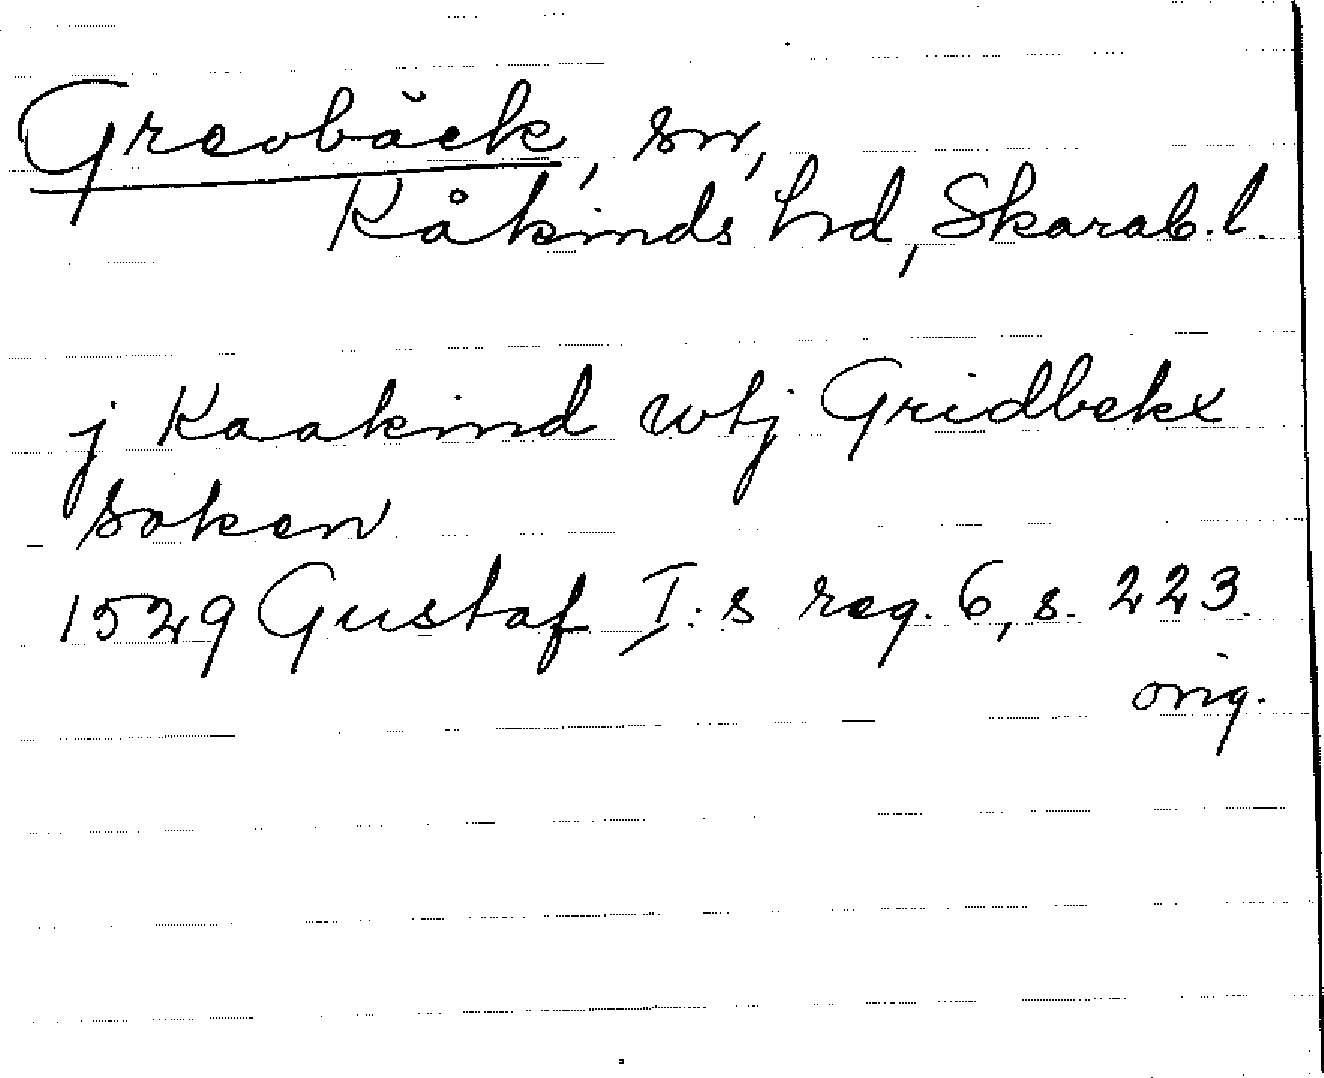 Grevbäck, sn,
Kåkinds hd, Skarab. l.
j Kaakind wtj Gridbekx
soken
1529 Gustaf I:s reg. 6, s. 223.
orig.